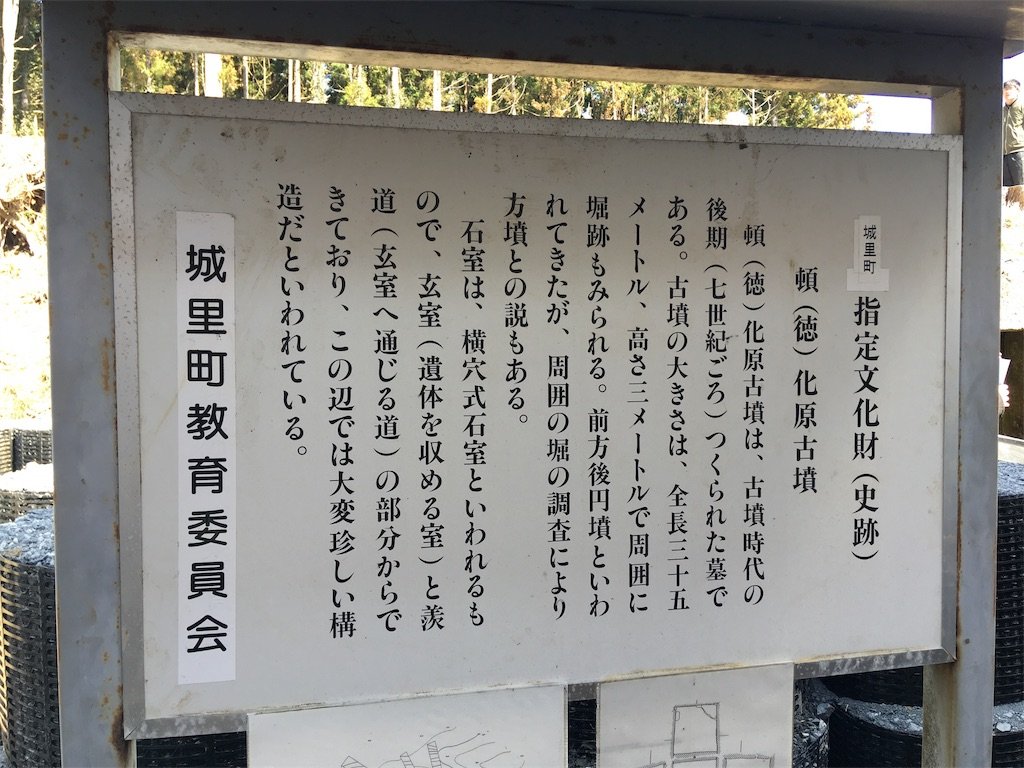 城里町
指定文化財(史跡)
頓(徳)化原古墳
頓(徳)化原古墳は、古墳時代の
後期(七世紀ごろ)つくられた墓で
ある。古墳の大きさは、全長三十五
メートル、高さ三メートルで周囲に
堀跡もみられる。前方後円墳といわ
れてきたが、周囲の堀の調査により
方墳との説もある。
石室は、横穴式石室といわれるも
ので、玄室(遺体を収める室)と羨
道(玄室へ通じる道)の部分からで
きており、この辺では大変珍しい構
造だといわれている。
城里町教育委員会